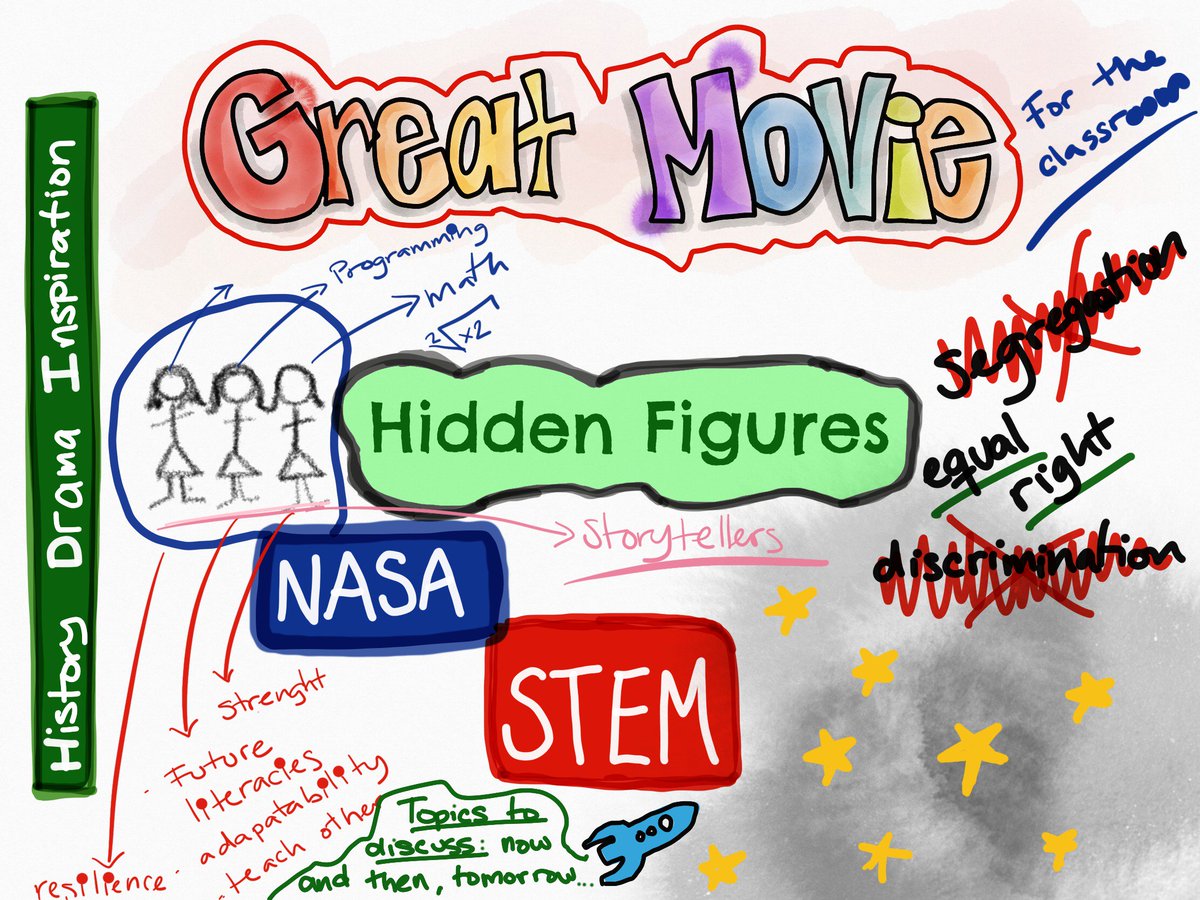 Great Movie
For the
classroom
History Drama Inspiration
Programming
math
2√x2
segregation
Hidden Figures
equal
right
Storytellers
discrimination
NASA
STEM
Strenght
Future
literacies
adapatability
teach other
resilience
Topics to
discuss: now
and then, tomorrow...